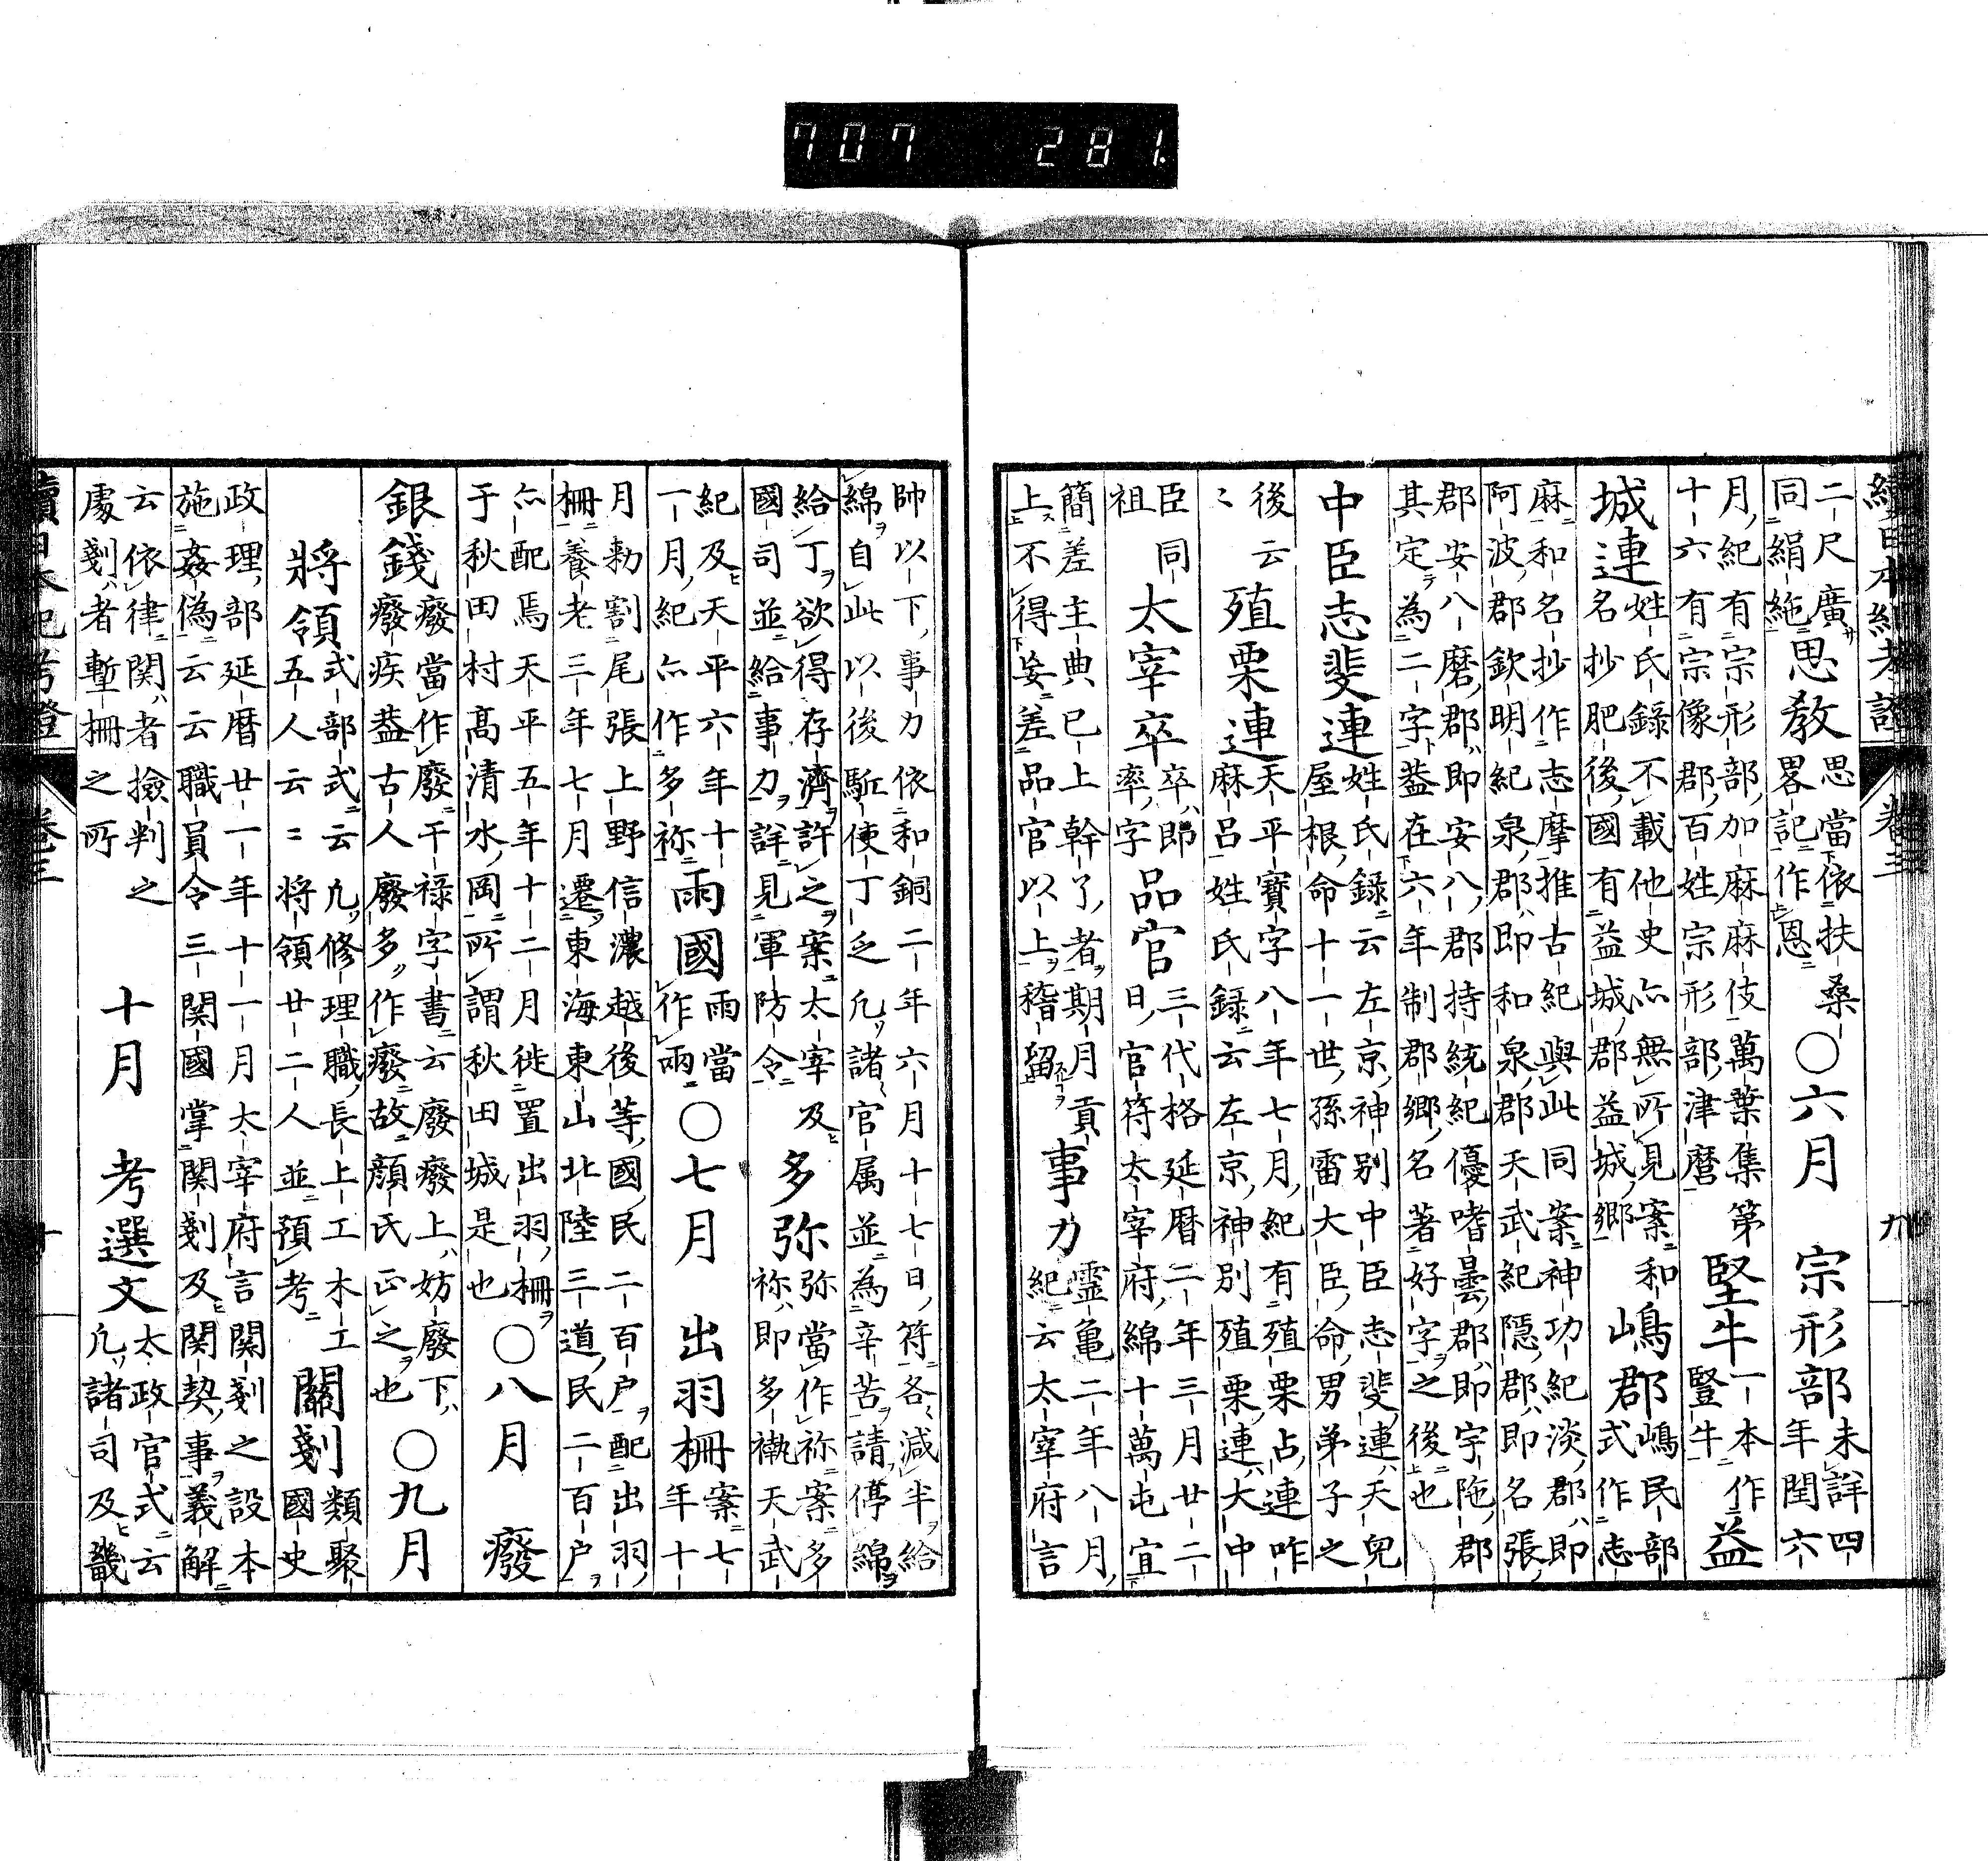 707 281.
續日本紀考證 卷三 九
二尺廣サ同絹絁思教思當依扶桑畧記作恩〇六月 宗形部未詳四年閏六
月紀有宗形部加麻麻伎萬葉集第十六有宗像郡百姓宗形部津麿堅牛一本作豎牛益
城連姓氏錄不載他史亦無所見案和名抄肥後國有益城郡益城鄉嶋郡嶋民部式作志
麻和名抄作志摩推古紀與此同案神功紀淡郡即阿波郡欽明紀泉郡即和泉郡天武紀隱郡即名張
郡安八磨郡即安八郡持統紀優嗜曇郡即宇陁郡其定為二字蓋在六年制郡鄉名著好字之後也
中臣志斐連姓氏錄云左京神別中臣志斐連天兒屋根命十一世孫雷大臣命男弟子之
後云〻殖栗連天平寶字八年七月紀有殖栗占連咋麻呂姓氏録云左京神別殖栗連大中
臣同祖太宰卒卒即率字品官三代格延曆二年三月廿二日官符太宰府綿十萬屯宜
簡差主典已上幹了者期月貢上不得妄差品官以上稽留事力靈亀二年八月紀云太宰府言
帥以下事力依和銅二年六月十七日符各減半給綿自此以後駈使丁乏凡諸官属並為辛苦請停綿
給丁欲得存濟許之案太宰及國司並給事力詳見軍防令多弥弥當作祢案多祢即多褹天武
紀及天平六年十一月紀亦作多祢雨國雨當作兩〇七月 出羽柵案七年十
月勅割尾張上野信濃越後等國民二百戶配出羽柵養老三年七月遷東海東山北陸三道民二百户
亦配焉天平五年十二月徙置出羽柵于秋田村高清水岡所謂秋田城是也〇八月 癈
銀錢癈當作廢干祿字書云廢癈上妨廢下癈疾蓋古人廢多作癈故顔氏正之也〇九月
將領式部式云凡修理職長上工木工五人云〻将領廿二人並預考關剗類聚國史
政理部延曆廿一年十一月太宰府言関剗之設本施姦偽云云職員令三関國掌関剗及関契事義解
云依律関者撿判之處剗者塹柵之所 十月 考選文太政官式云凡諸司及畿
續日本紀考證 卷三